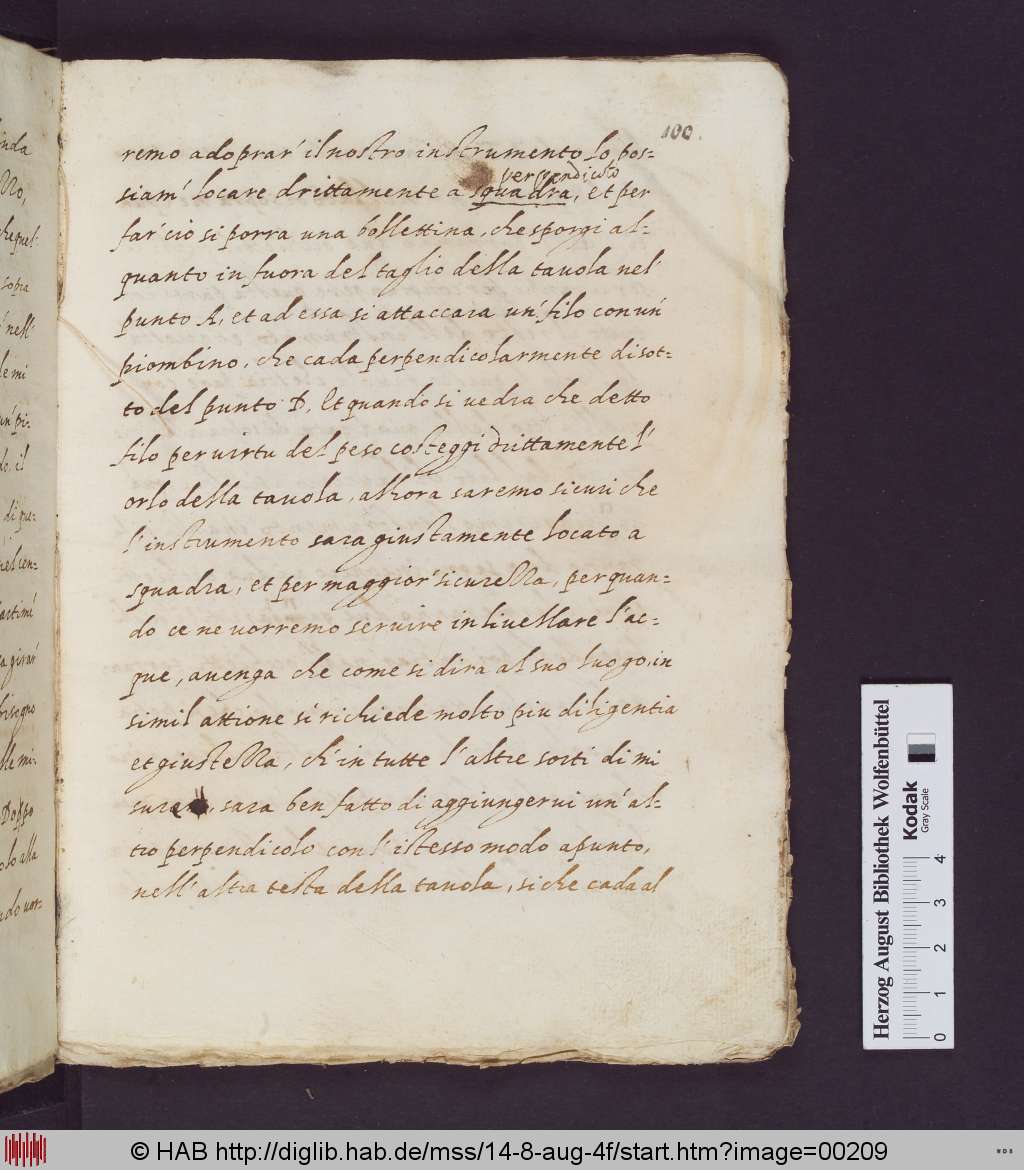 100.
remo adoprar' il nostro instrumento lo pos=
perpendicolo
siam' locare drittamente a squadra, et per
far' ciò si porra una bollettina, che sporgi al=
quanto in fuora del taglio della tavola nel'
punto A, et ad essa si attaccara un' filo con un'
piombino, che cada perpendicolarmente di sot=
to del punto D. Et quando si vedra che detto
filo per virtu del peso costeggi drittamente l'
orlo della tavola, alhora saremo sicuri che
l'instrumento sara giustamente locato a
squadra, et per maggior' sicurezza, per quan=
do ce ne vorremo servire in livellare l'ac=
que, avenga che come si dira al suo luogo, in
simil attione si richiede molto piu diligentia
et giustezza, ch' in tutte l'altre sorti di mi
sure, sara ben fatto di aggiungervi un' al=
tro perpendicolo con l'istesso modo apunto,
nell'altra testa della tavola, si che cada al
inda
che quel'
sopra
nell'
le mi
un' pi=
do, il
di qu=
el cen=
a girar'
bisogno
lle mi=
Doppo
olo alla
ndo vor=
Herzog August Bibliothek Wolfenbüttel
Kodak
Gray Scale
0 1 2 3 4
© HAB http://diglib.hab.de/mss/14-8-aug-4f/start.htm?image=00209